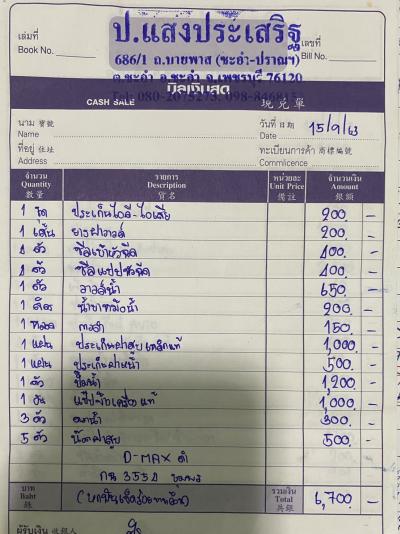 ป.แสงประเสริฐ
เล่มที่ Book No. เลขที่ Bill No.
686/1 ถ.บายพาส (ชะอำ-ปราณฯ)
ต.ชะอำ อ.ชะอำ จ.เพชรบุรี 76120
Tel: 080-2075273, 098-846815
บิลเงินสด
CASH SALE 現兌單
นาม 寶號 Name วันที่ 日期 Date 15/9/63
ที่อยู่ 住址 Address ทะเบียนการค้า 商標編號 Commlicence
จำนวน Quantity 數量 รายการ Description 貨名 หน่วยละ Unit Price 備註 จำนวนเงิน Amount 銀額
1 ชุด ประเก็นไอดี-ไอเสีย 200 -
1 เส้น ยางฝาวาลว์ 200 -
4 ตัว ซีลเบ้าหัวฉีด 400 -
4 ตัว ซีลแป๊ปหัวฉีด 400 -
1 ตัว วาวล์น้ำ 650 -
1 ลิตร น้ำยาหม้อน้ำ 200 -
1 หลอด กาวดำ 150 -
1 แผ่น ประเก็นฝาสูบเหล็กแท้ 1,000 -
1 แผ่น ประเก็นฝาหน้า 500 -
1 ตัว ปั๊มน้ำ 1,200 -
1 อัน แป๊ปเครื่อง แท้ 1,000 -
3 ตัว ตาน้ำ 300 -
5 ตัว น๊อตฝาสูบ 500 -
D-MAX ดำ
กน 3554 ชุมพร
บาท Baht 銖 (หกพันเจ็ดร้อยบาทถ้วน) รวมเงิน Total 共銀 6,700 -
ผู้รับเงิน 收銀人